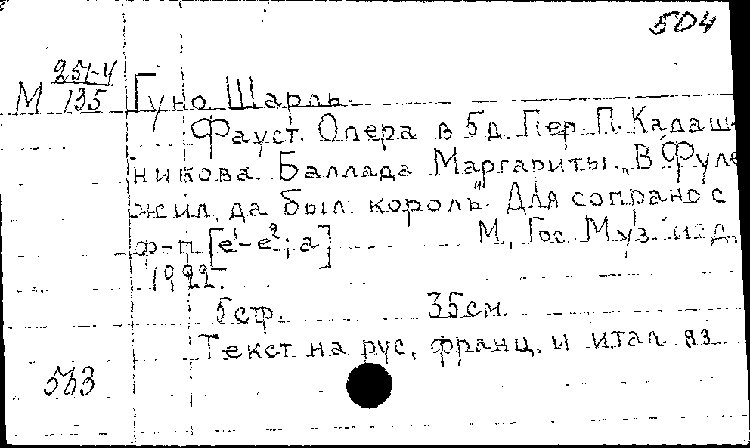 504
М 251-4/135 Гуно Шарль.
Фауст. Опера в 5 д. Пер. П. Калаш-
никова. Баллада Маргариты „В Фуле
жил, да был король". Для сопрано с
ф-п [e¹-e²; a] М, Гос. Муз. изд.,
1922г.
5 стр. 35 см.
Текст на рус., франц. и итал. яз.
563